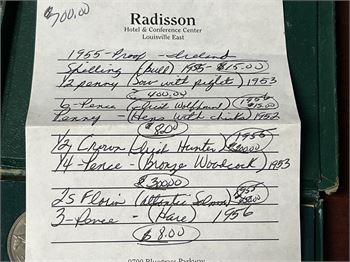 $700.00
Radisson
Hotel & Conference Center
Louisville East
1955-Proof - Ireland
Shilling (bull) 1955 - $15.00
1/2 penny (Sow with piglet) 1953
$400.00
6-Pence - (Wolfhound) 1956 $15.00
Penny - (Hens with chicks) 1952
$8.00
1/2 Crown (Hunter) 1955
1/4 Pence - (Bronze Woodcock) 1953
$300.00
2s Florin (Atlantic Salmon) 1955
3-Pence - (Hare) 1956
$8.00
9700 Bluegrass Parkway